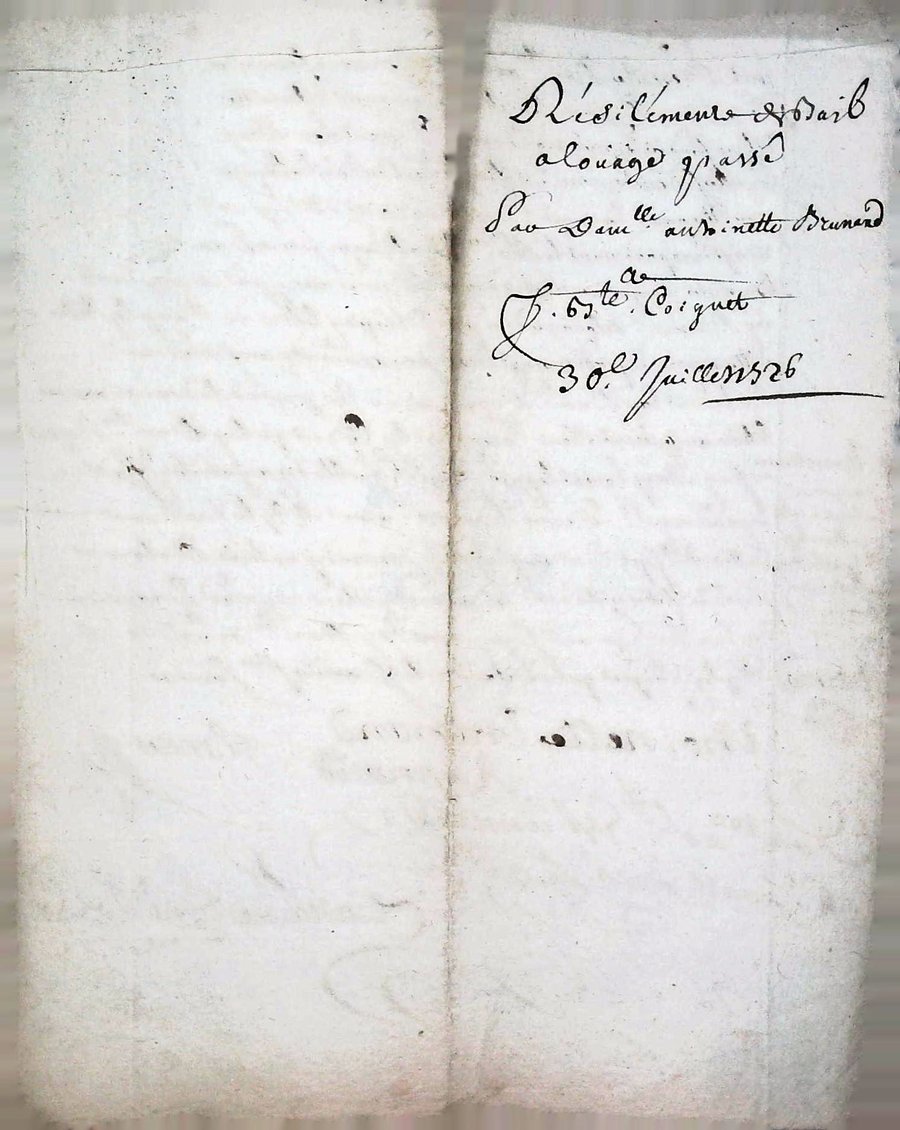 Résilémente de Bail
a louage passé
Par Dam^lle antoinette Brunard
a
J. B^te. Coignet
30^e. Juillet 1526